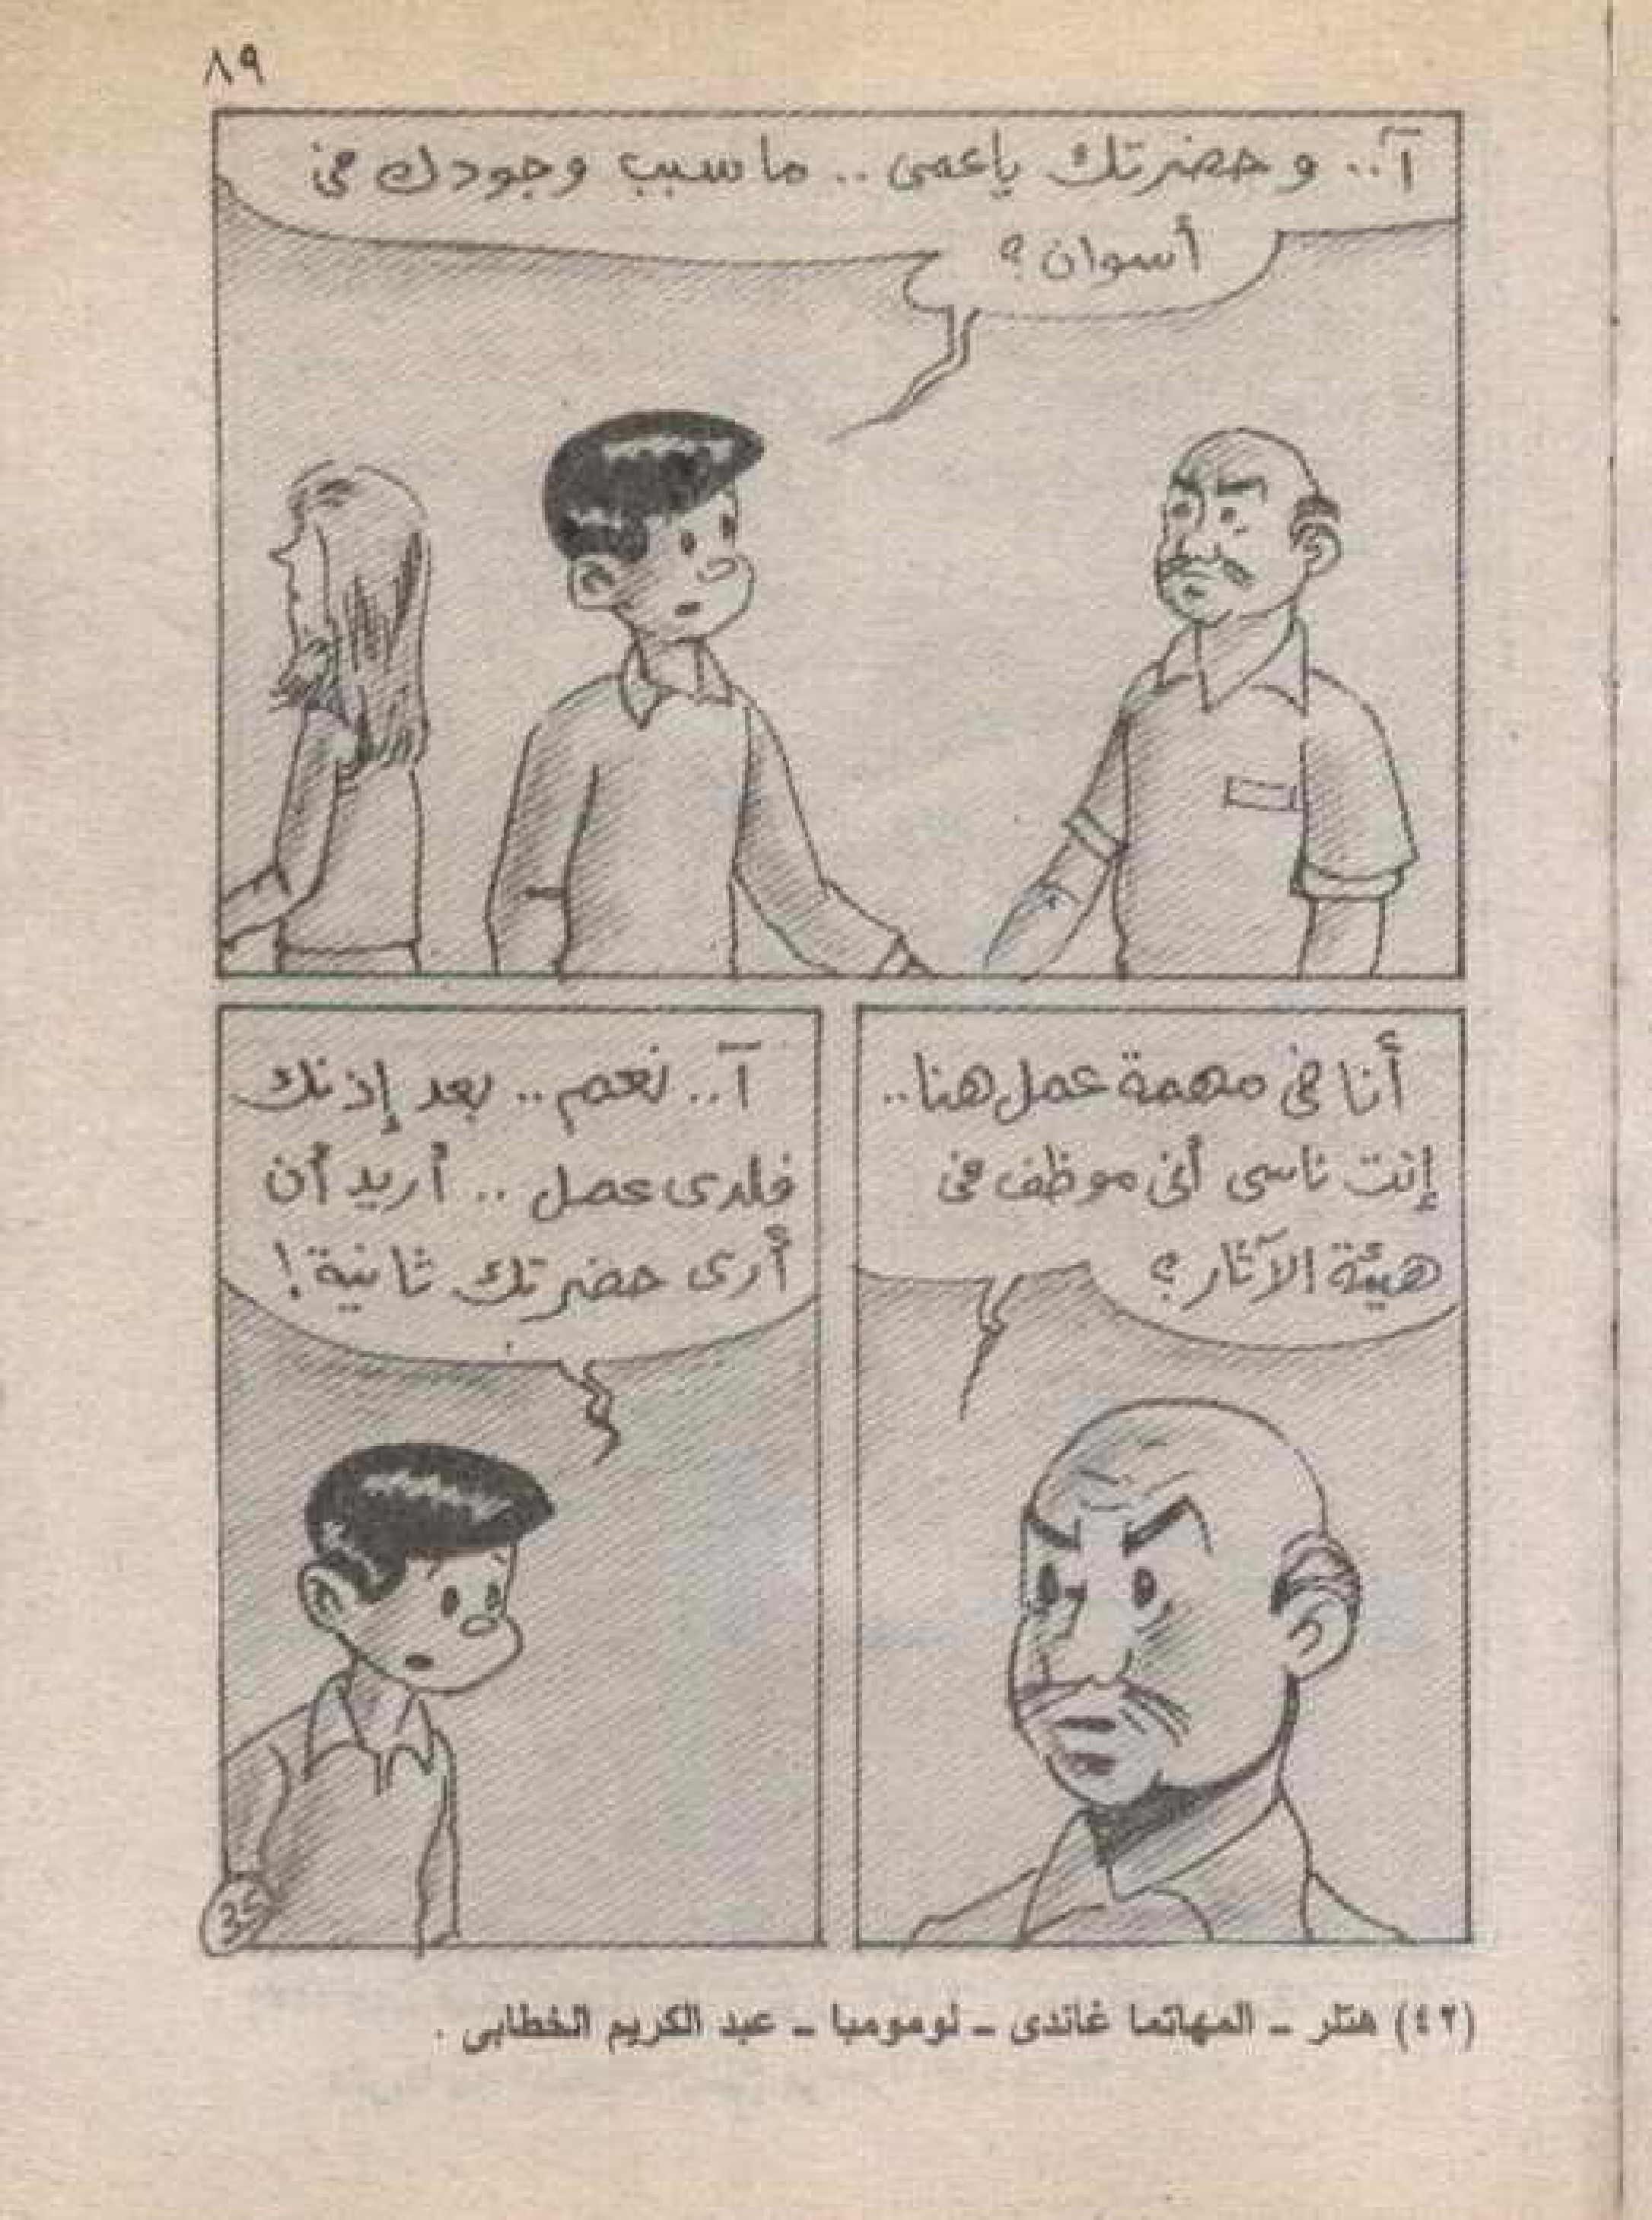 ٨٩
آ.. وحضرتك ياعمى .. ما سبب وجودك فى
أسوان؟
أنا فى مهمة عمل هنا..
إنت ناسى أنى موظف فى
هيئة الآثار؟
آ.. نعم .. بعد إذنك
فلدى عمل .. أريد أن
أرى حضرتك ثانية!
35
(٤٢) هتلر ـ المهاتما غاندى ـ لومومبا ـ عبد الكريم الخطابى .